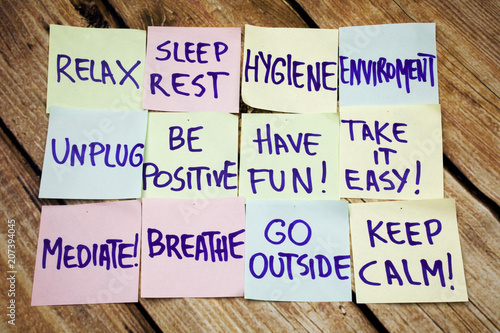 RELAX
SLEEP
REST
HYGIENE
ENVIROMENT
UNPLUG
BE
POSITIVE!
HAVE
FUN!
TAKE
IT
EASY!
MEDIATE!
BREATHE
GO
OUTSIDE
KEEP
CALM!
207394045